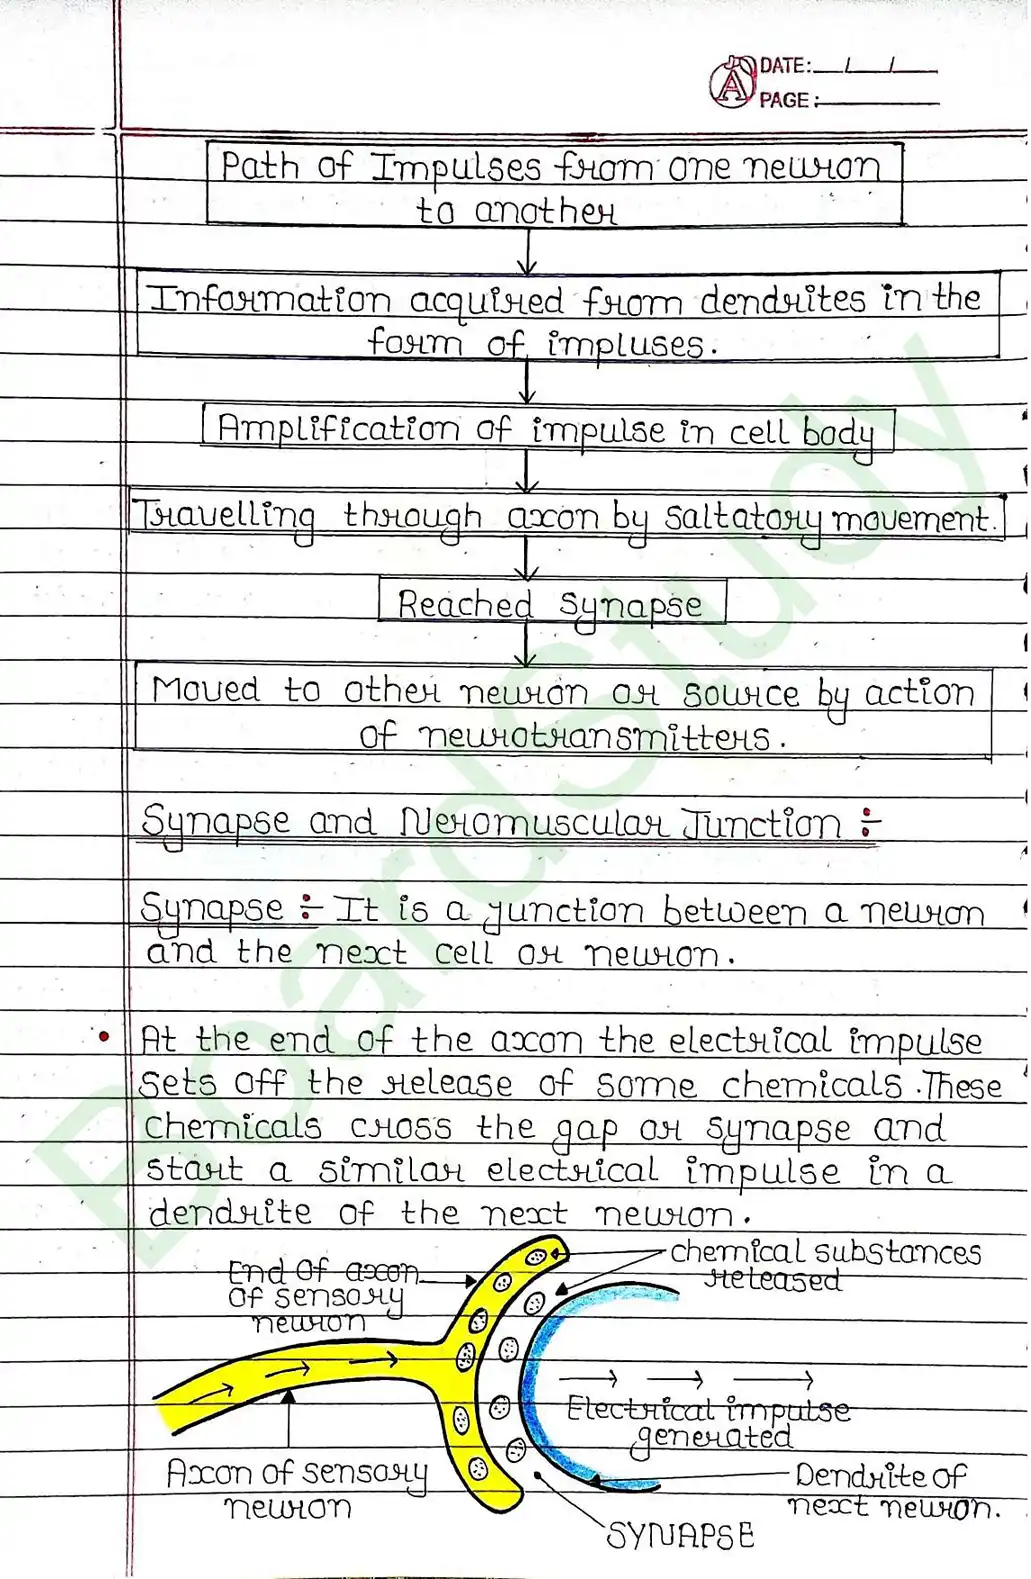 DATE: / /
PAGE:
Path of Impulses from one neuron
to another
Information acquired from dendrites in the
form of impluses.
Amplification of impulse in cell body
Travelling through axon by saltatory movement.
Reached Synapse
Moved to other neuron or source by action
of neurotransmitters.
Synapse and Neromuscular Junction :-
Synapse :- It is a junction between a neuron
and the next cell or neuron.
• At the end of the axon the electrical impulse
sets off the release of some chemicals. These
chemicals cross the gap or synapse and
start a similar electrical impulse in a
dendrite of the next neuron.
chemical substances
released
End of axon
of sensory
neuron
Electrical impulse
generated
Axon of sensory
neuron
Dendrite of
next neuron.
SYNAPSE
BoardStudy